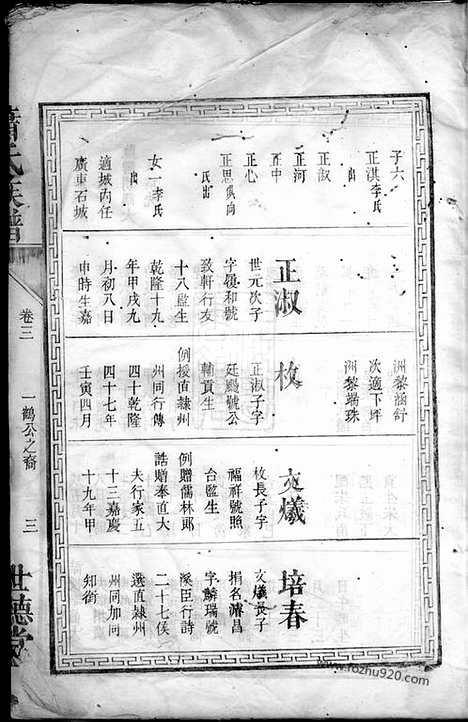 子六
正淇李氏
出
正淑
正河
正中
正心
正思㒷尚
氏出
女一李氏
出
適城內任
廣東石城
正淑
世元次子
字履和號
致軒行友
十八監生
乾隆十九
年甲戌九
月初八日
申時生嘉
洲黎涵舒
次適下坪
洲黎瑞珠
枚
正淑子字
廷颺號公
輔貢生
例援直隸州
州同行傳
四十乾隆
四十七年
壬寅四月
文爔
枚長子字
福祥號照
台監生
例贈儒林郎
誥贈奉直大
夫行家五
十三嘉慶
十九年甲
培春
文爔長子
捐名濬昌
字麟瑞號
溪臣行詩
二十七俟
選直隸州
州同加同
知銜
蕭氏族譜
卷三
一鶴公之裔
三
世德堂
www.fozhu920.com